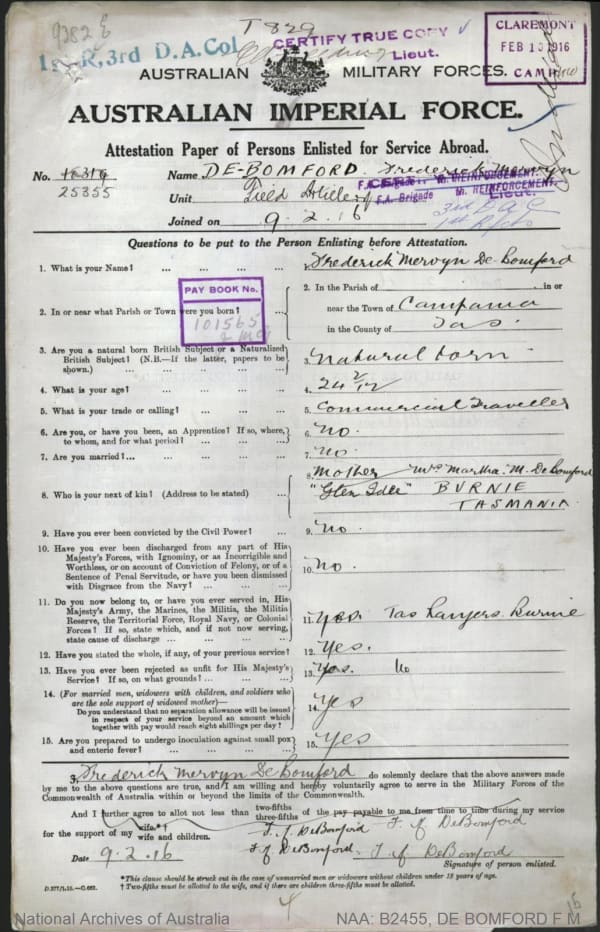 9382
T 829
CERTIFY TRUE COPY
Lieut.
3rd D.A.Col
CLAREMONT
FEB 10 1916
CAMP
AUSTRALIAN MILITARY FORCES.
AUSTRALIAN IMPERIAL FORCE.
Attestation Paper of Persons Enlisted for Service Abroad.
No. 16319 Name DE-BOMFORD. Frederick Mervyn
25355
Unit Field Artillery
F.A. Brigade REINFORCEMENT.
Lieut.
3rd D.A.C
Joined on 9.2.16
Questions to be put to the Person Enlisting before Attestation.
1. What is your Name? ... ... ... ... 1. Frederick Mervyn De-Bomford
PAY BOOK No.
101565
2. In or near what Parish or Town were you born? ... 2. In the Parish of in or
near the Town of Campania
in the County of Tas.
3. Are you a natural born British Subject or a Naturalized
British Subject? (N.B.—If the latter, papers to be
shown.) ... ... 3. Natural born
4. What is your age? ... ... ... 4. 24 2/12
5. What is your trade or calling? ... ... ... 5. Commercial Traveller
6. Are you, or have you been, an Apprentice? If so, where,
to whom, and for what period? ... ... ... 6. No.
7. Are you married?... ... ... ... 7. No.
8. Who is your next of kin? (Address to be stated) ... 8. Mother Mrs Martha. M. De Bomford
"Glen Idle" BURNIE
TASMANIA
9. Have you ever been convicted by the Civil Power? ... 9. No.
10. Have you ever been discharged from any part of His
Majesty's Forces, with Ignominy, or as Incorrigible and
Worthless, or on account of Conviction of Felony, or of a
Sentence of Penal Servitude, or have you been dismissed
with Disgrace from the Navy? ... ... 10. No.
11. Do you now belong to, or have you ever served in, His
Majesty's Army, the Marines, the Militia, the Militia
Reserve, the Territorial Force, Royal Navy, or Colonial
Forces? If so, state which, and if not now serving,
state cause of discharge ... ... ... 11. Yes. Tas Rangers. Burnie
12. Have you stated the whole, if any, of your previous service? 12. Yes.
13. Have you ever been rejected as unfit for His Majesty's
Service? If so, on what grounds?... ... ... 13. Yes. No
14. (For married men, widowers with children, and soldiers who
are the sole support of widowed mother)—
Do you understand that no separation allowance will be issued
in respect of your service beyond an amount which
together with pay would reach eight shillings per day? 14. Yes
15. Are you prepared to undergo inoculation against small pox
and enteric fever? ... ... ... ... 15. Yes
I, Frederick Mervyn De Bomford do solemnly declare that the above answers made
by me to the above questions are true, and I am willing and hereby voluntarily agree to serve in the Military Forces of the
Commonwealth of Australia within or beyond the limits of the Commonwealth.
And I further agree to allot not less than two-fifths three-fifths of the pay payable to me from time to time during my service
for the support of my wife.*† wife and children. F. M. DeBomford F. M. DeBomford
Date 9.2.16 F. M. DeBomford. F. M. DeBomford
Signature of person enlisted.
*This clause should be struck out in the case of unmarried men or widowers without children under 18 years of age.
† Two-fifths must be allotted to the wife, and if there are children three-fifths must be allotted.
National Archives of Australia
NAA: B2455, DE BOMFORD F M